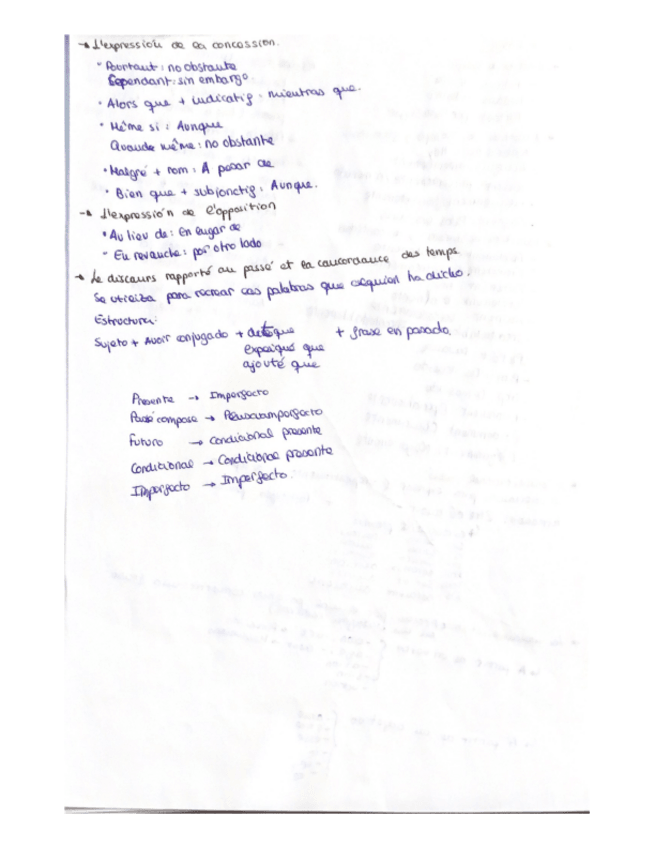 → L'expression de la concession.
• Pourtant : no obstante
Cependant : sin embargo
• Alors que + indicatif : mientras que.
• Même si : Aunque
Quande même : no obstante
• Malgré + nom : A pesar de
• Bien que + subjonctif : Aunque.
→ L'expression de l'opposition
• Au lieu de : en lugar de
• En revanche : por otro lado
→ Le discours rapporté au passé et la concordance des temps
Se utiliza para recrear las palabras que alguien ha dicho.
Estructura:
Sujeto + Avoir conjugado + que + frase en pasado.
expliqué que
ajouté que
Presente → Imperfecto
Passé compose → Pluscuamperfecto
Futuro → Condicional presente
Condicional → Condicional presente
Imperfecto → Imperfecto.